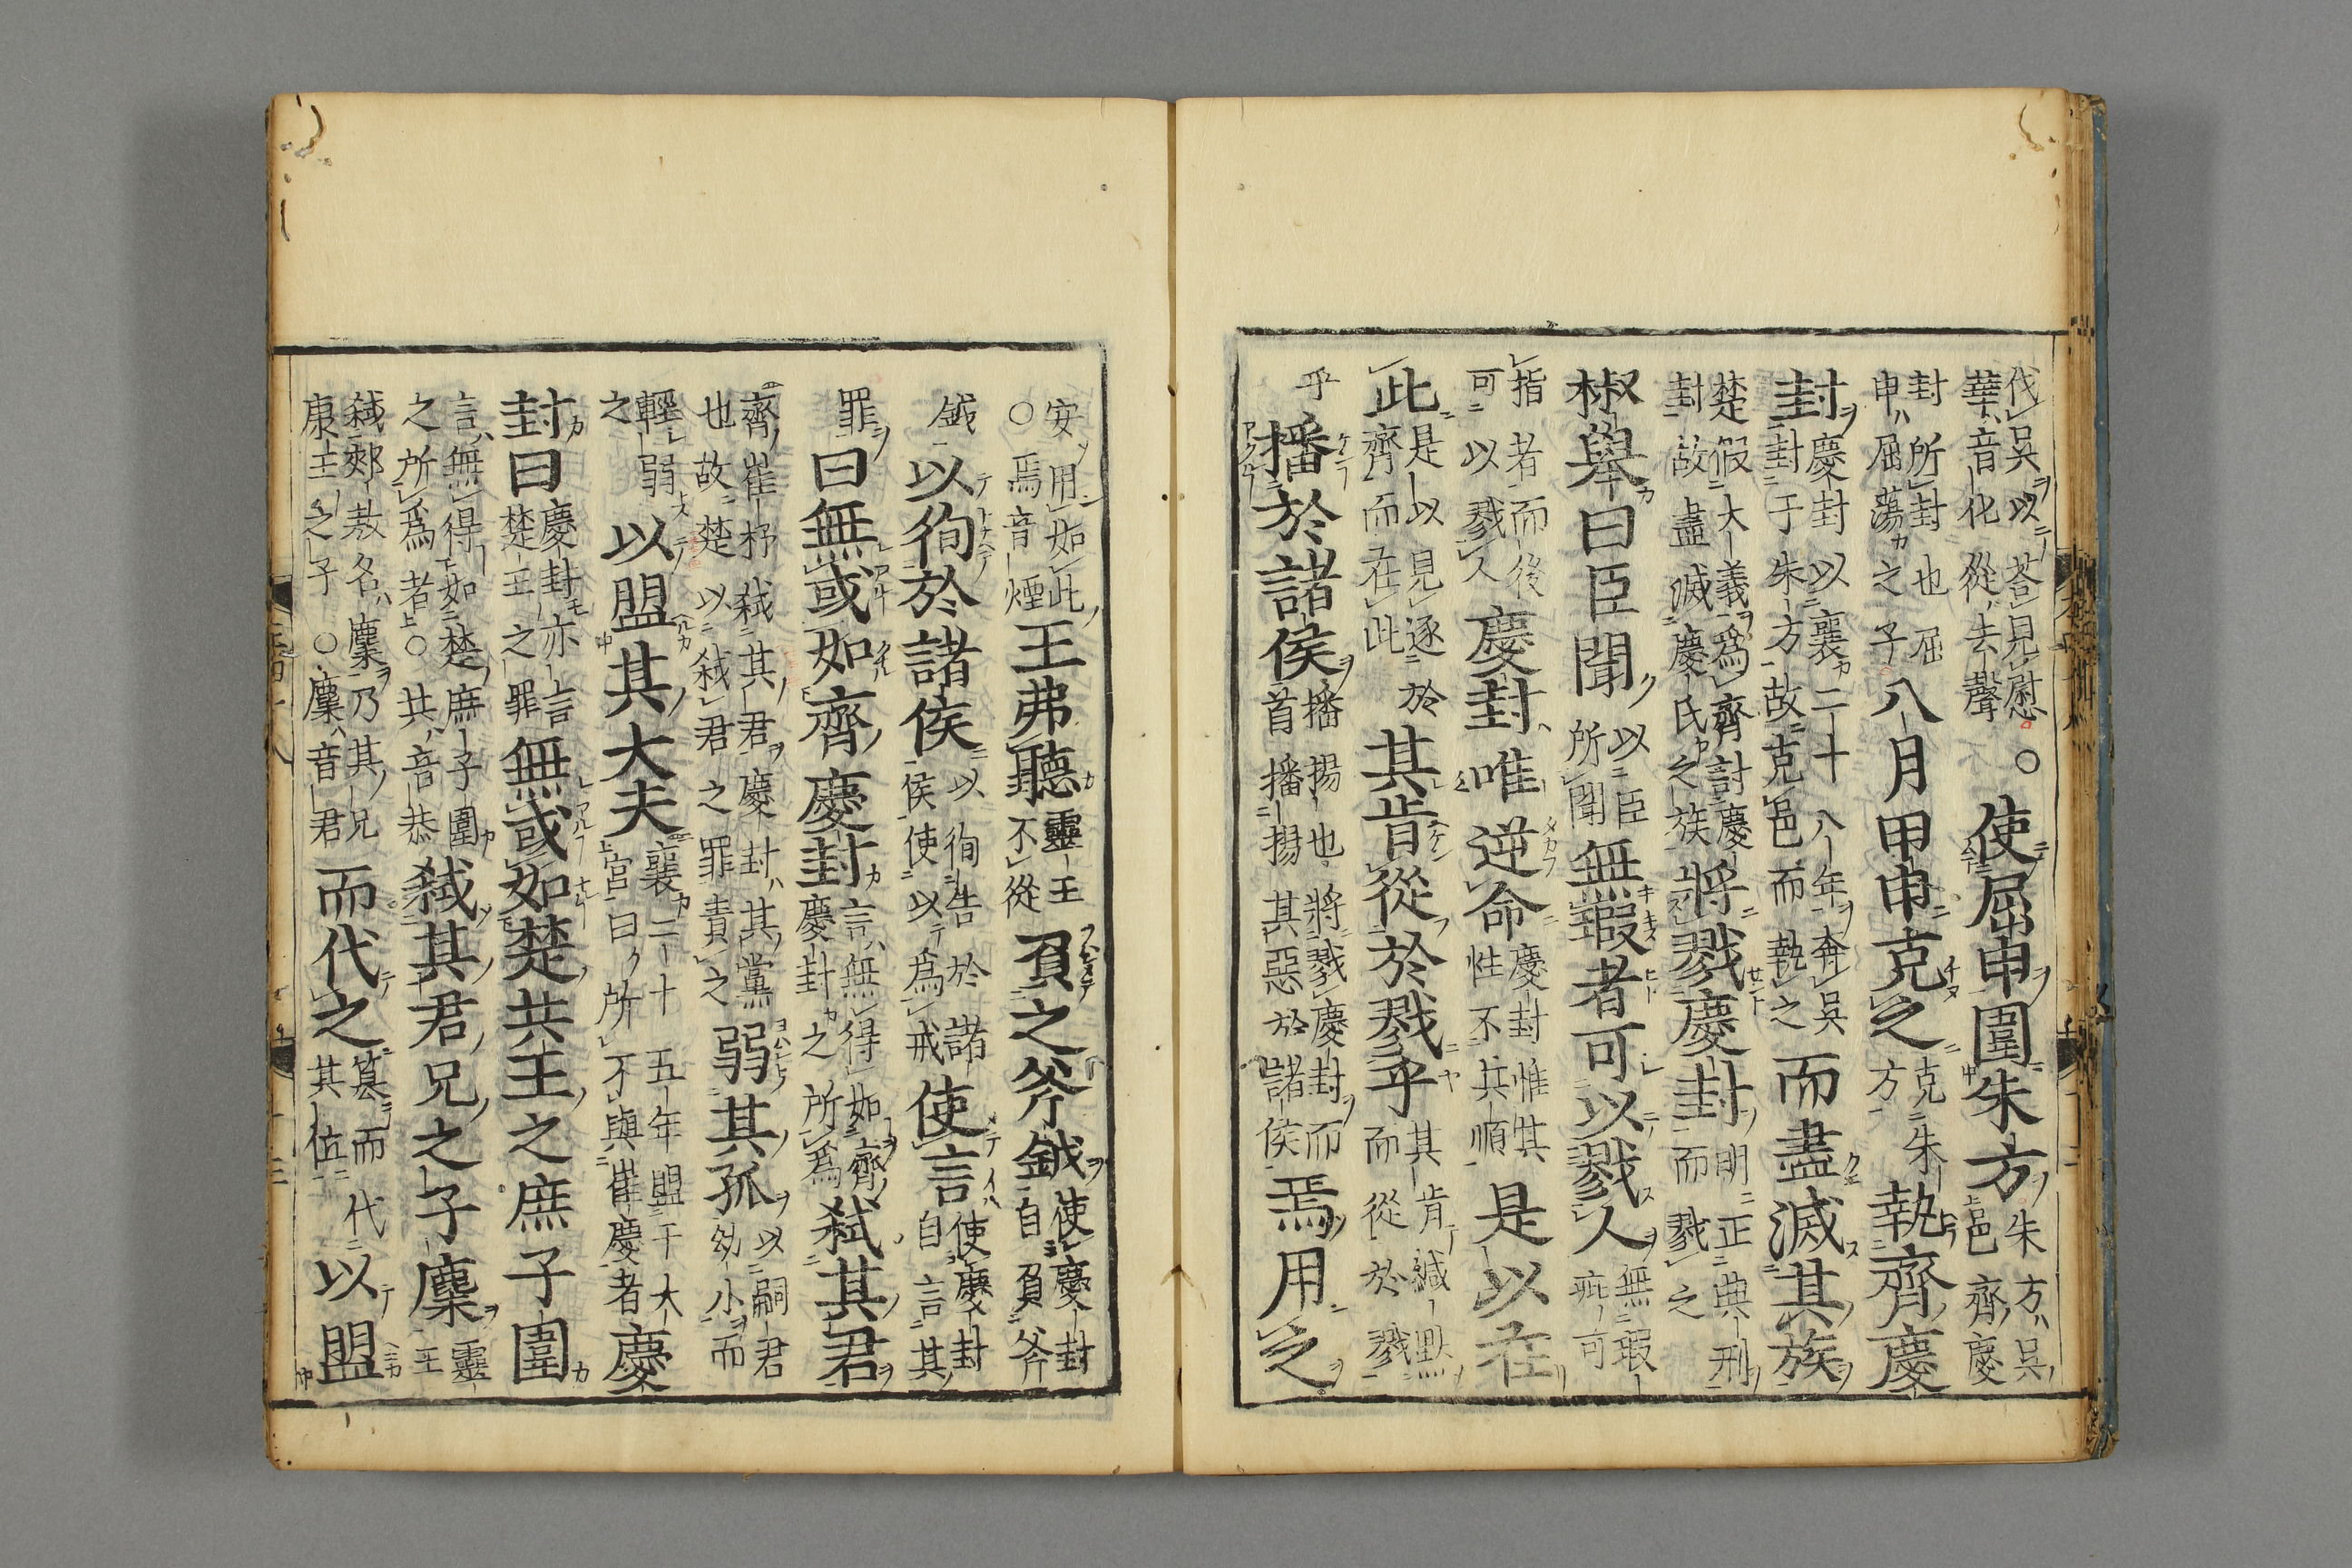 伐吳以荅見慰○使屈申圍朱方朱方吳
華音化從去聲邑齊慶
封所封也屈八月甲申克之克朱執齊慶
申屈蕩之子方
封慶封以襄二十八年奔吳而盡滅其族
封于朱方故克邑而執之
楚假大義爲齊討慶將戮慶封明正典刑
封故盡滅慶氏之族而戮之
椒舉曰臣聞以臣無瑕者可以戮人無瑕
所聞疵可
指者而後慶封唯逆命慶封惟其是以在
可以戮人性不共順
此是以見逐於其肯從於戮乎其肯緘默
齊而在此而從於戮
乎播於諸侯播揚也將戮慶封而焉用之
首播揚其惡於諸侯
安用如此王弗聽靈王負之斧鉞使慶封
○焉音煙不從自負斧
鉞以徇於諸侯以徇告於諸使言使慶封
侯使以爲戒自言其
罪曰無或如齊慶封言無得如齊弑其君
慶封之所爲
齊崔杼弑其君慶封其黨弱其孤以嗣君
也故楚以弑君之罪責之幼小而
輕弱以盟其大夫襄二十五年盟于大慶
之宮曰所不與崔慶者
封曰慶封亦言無或如楚共王之庶子圍
楚王之罪
言無得如楚庶子圍弑其君兄之子麇靈
之所爲者○共音恭王
弑郟敖名麇乃其兄而代之篡而代以盟
康王之子○麇音君其位